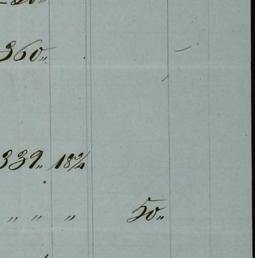 360 "
339 " 18¾
" " " 50 "